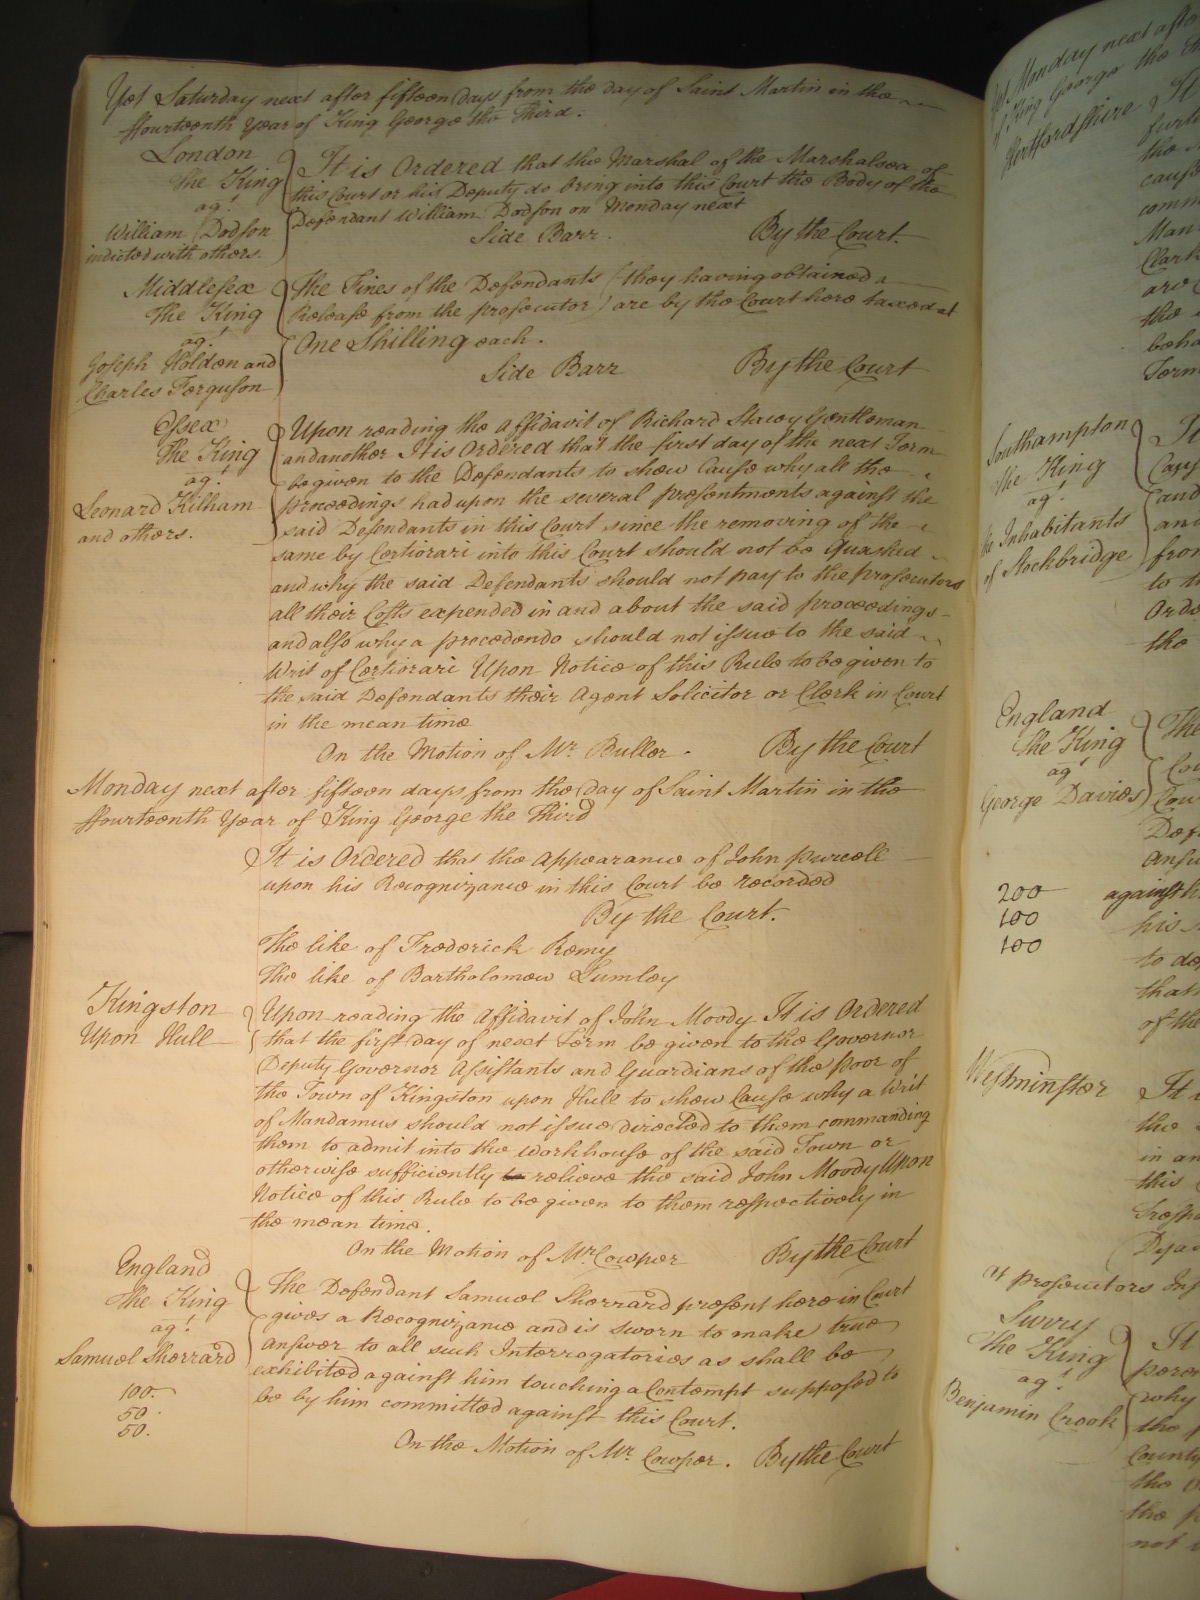 Yet Saturday next after fifteen days from the day of Saint Martin in the
ffourteenth Year of King George the Third.
London
The King
agt
William Dodson
indicted with others.
It is Ordered that the Marshal of the Marshalsea of
this Court or his Deputy do bring into this Court the Body of the
Defendant William Dodson on Monday next
Side Barr. By the Court.
Middlesex
The King
agt
Joseph Holden and
Charles Ferguson
The Fines of the Defendants (they having obtained a
Release from the prosecutor) are by the Court here taxed at
One Shilling each.
Side Barr By the Court
Essex
The King
agt
Leonard Kilham
and others.
Upon reading the Affidavit of Richard Stacey Gentleman
and another It is Ordered that the first day of the next Term
be given to the Defendants to shew Cause why all the
proceedings had upon the several presentments against the
said Defendants in this Court since the removing of the
same by Certiorari into this Court should not be Quashed
and why the said Defendants should not pay to the prosecutors
all their Costs expended in and about the said proceedings
and also why a procedendo should not issue to the said
Writ of Certiorari Upon Notice of this Rule to be given to
the said Defendants their Agent Solicitor or Clerk in Court
in the mean time
On the Motion of Mr. Buller. By the Court
Monday next after fifteen days from the day of Saint Martin in the
ffourteenth Year of King George the Third
It is Ordered that the Appearance of John Purcell
upon his Recognizance in this Court be recorded
By the Court.
The like of Frederick Remy
The like of Bartholomew Lumley
Kingston
Upon Hull
Upon reading the Affidavit of John Moody It is Ordered
that the first day of next Term be given to the Governor
Deputy Governor Assistants and Guardians of the Poor of
the Town of Kingston upon Hull to shew Cause why a Writ
of Mandamus should not issue directed to them commanding
them to admit into the Workhouse of the said Town or
otherwise sufficiently to relieve the said John Moody Upon
Notice of this Rule to be given to them respectively in
the mean time.
On the Motion of Mr. Cowper By the Court
England
The King
agt
Samuel Sherrard
100.
50.
50.
The Defendant Samuel Sherrard present here in Court
gives a Recognizance and is sworn to make true
answer to all such Interrogatories as shall be
exhibited against him touching a Contempt supposed to
be by him committed against this Court.
On the Motion of Mr. Cowper. By the Court
Monday next after
of King George the
Hertfordshire It
the
cause
Southampton
The King
agt
the Inhabitants
of Stockbridge
It
and
from
the
England
The King
agt
George Davies
200
100
100
The
against h
his
to
that
of the
Westminster
It
the
in an
this
prosecutors
Surry
The King
agt
Benjamin Crook
It
why
the
County
the
the
not